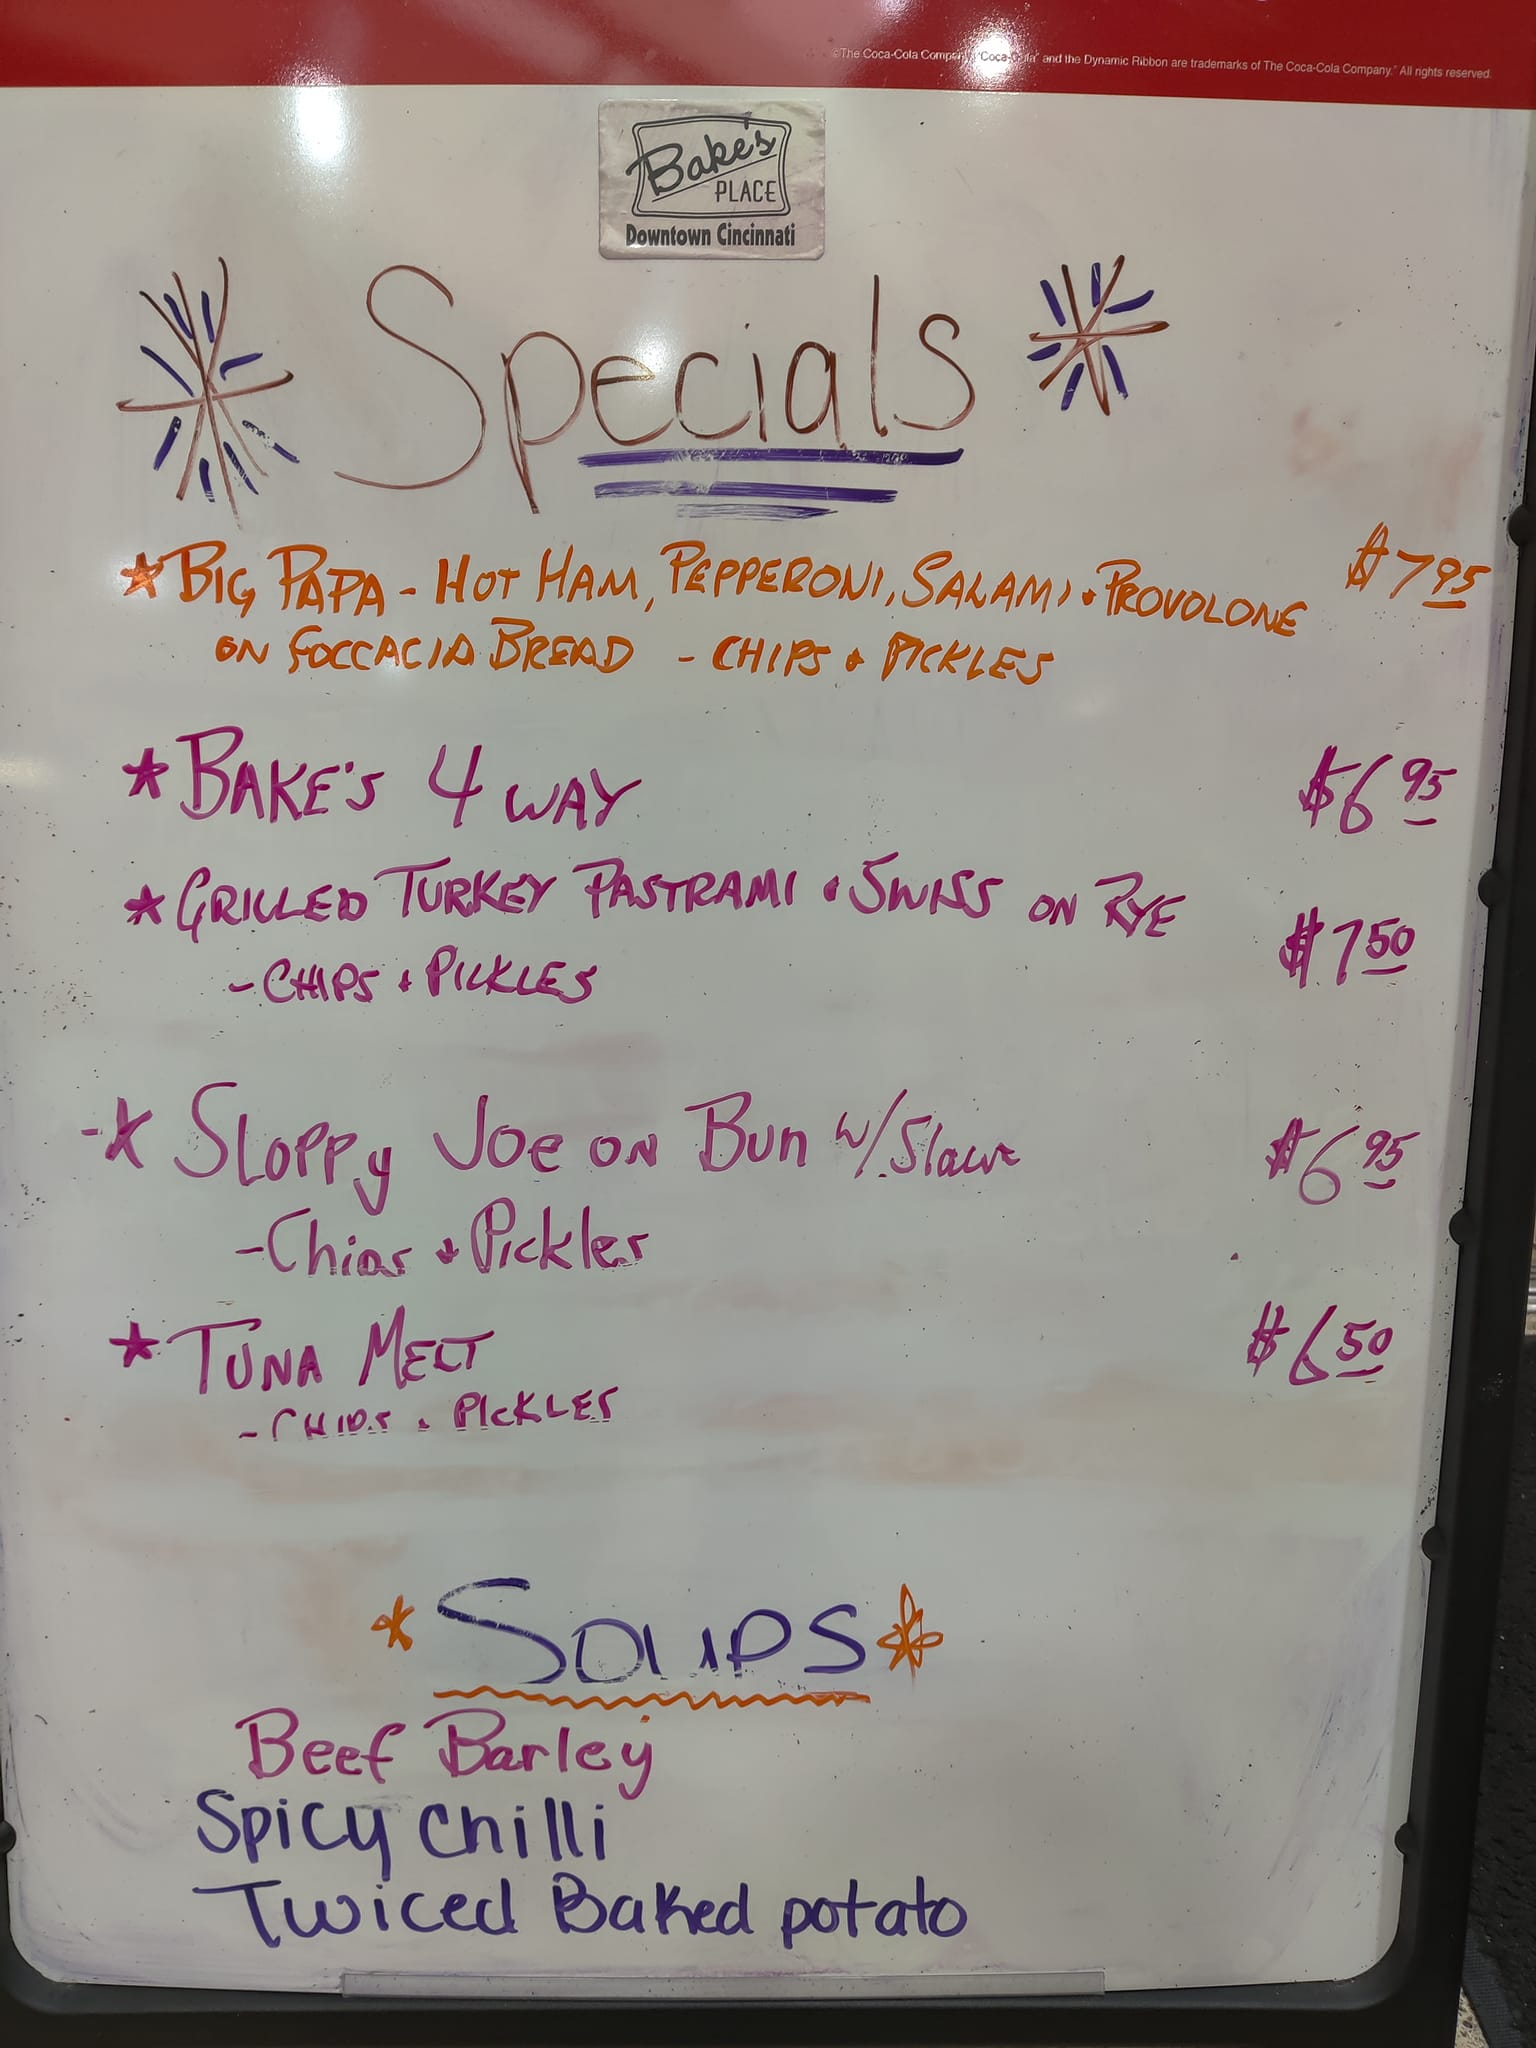 ©The Coca-Cola Company. "Coca-Cola" and the Dynamic Ribbon are trademarks of The Coca-Cola Company." All rights reserved.
Bake's
PLACE
Downtown Cincinnati
Specials
BIG PAPA - HOT HAM, PEPPERONI, SALAMI + PROVOLONE $7.95
ON FOCCACIA BREAD - CHIPS + PICKLES
BAKE'S 4 WAY $6.95
GRILLED TURKEY PASTRAMI + SWISS ON RYE $7.50
- CHIPS + PICKLES
Sloppy Joe on Bun w/Slaw $6.95
- Chips + Pickles
TUNA MELT $6.50
- CHIPS + PICKLES
SOUPS
Beef Barley
Spicy chilli
Twiced Baked potato